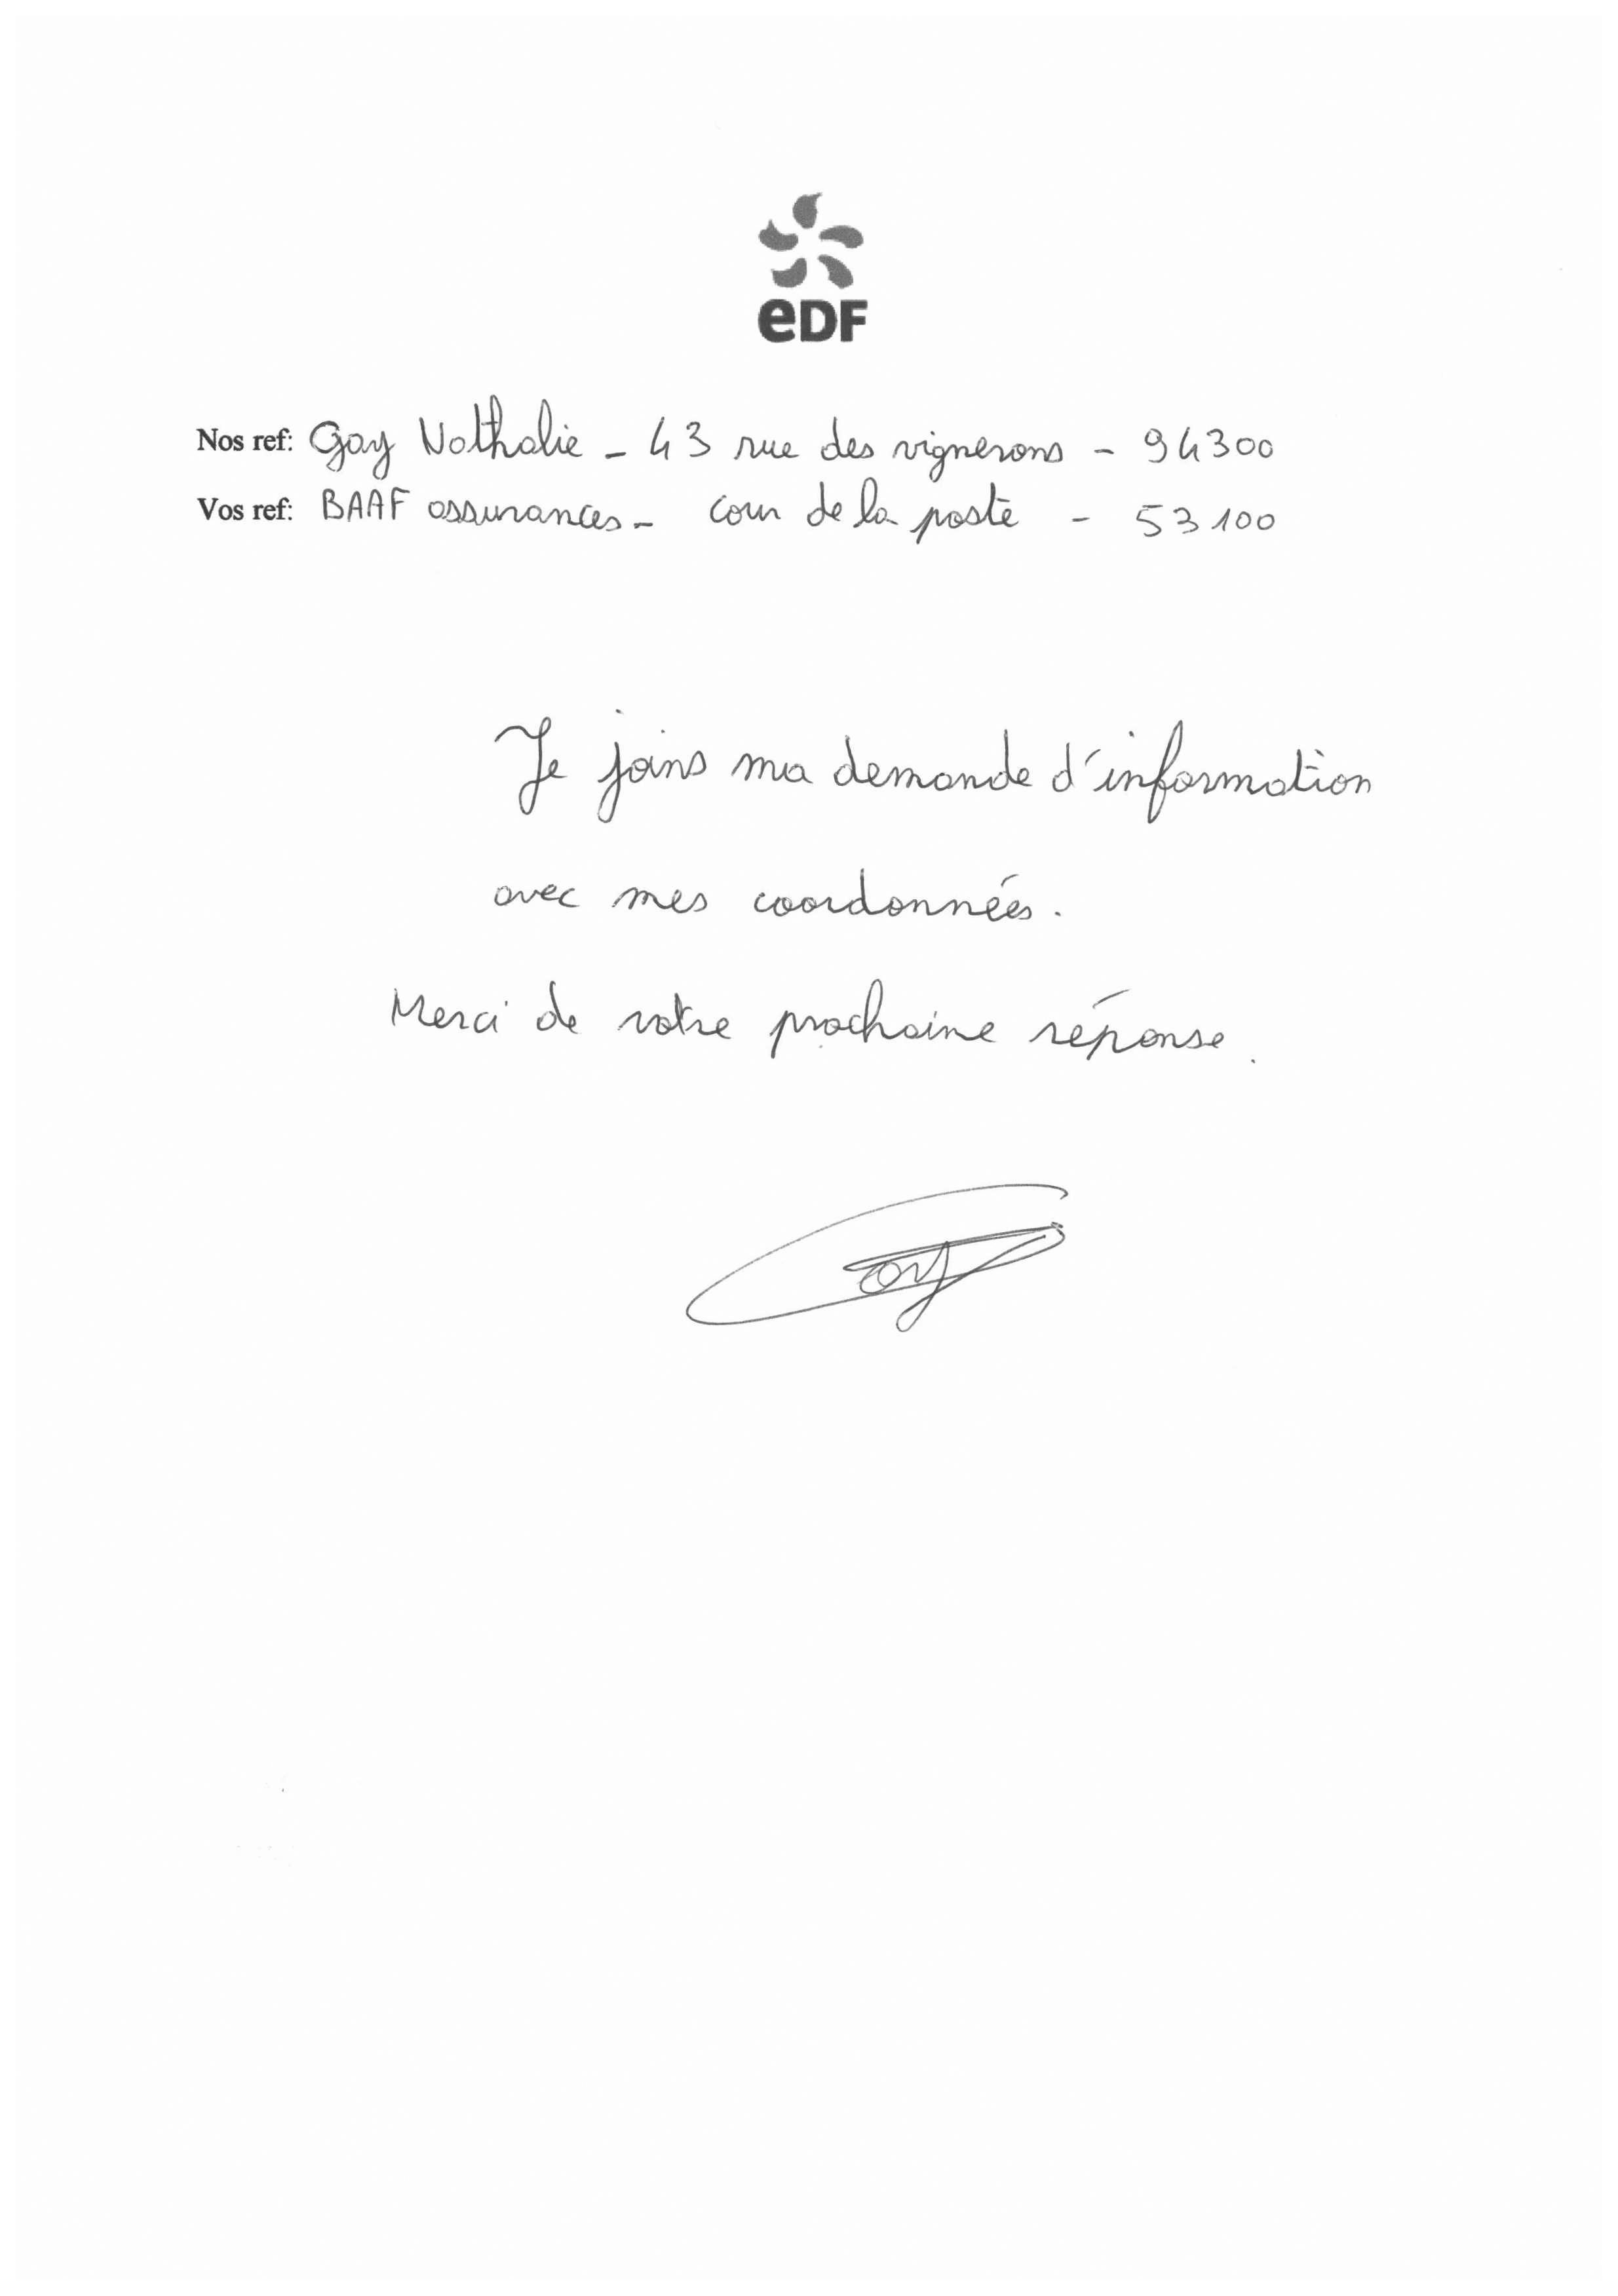 eDF
Nos ref: Gay Nathalie - 43 rue des vignerons - 94300
Vos ref: BAAF assurances - cour de la poste - 53100
Je joins ma demande d'information
avec mes coordonnées.
Merci de votre prochaine réponse.
Gay